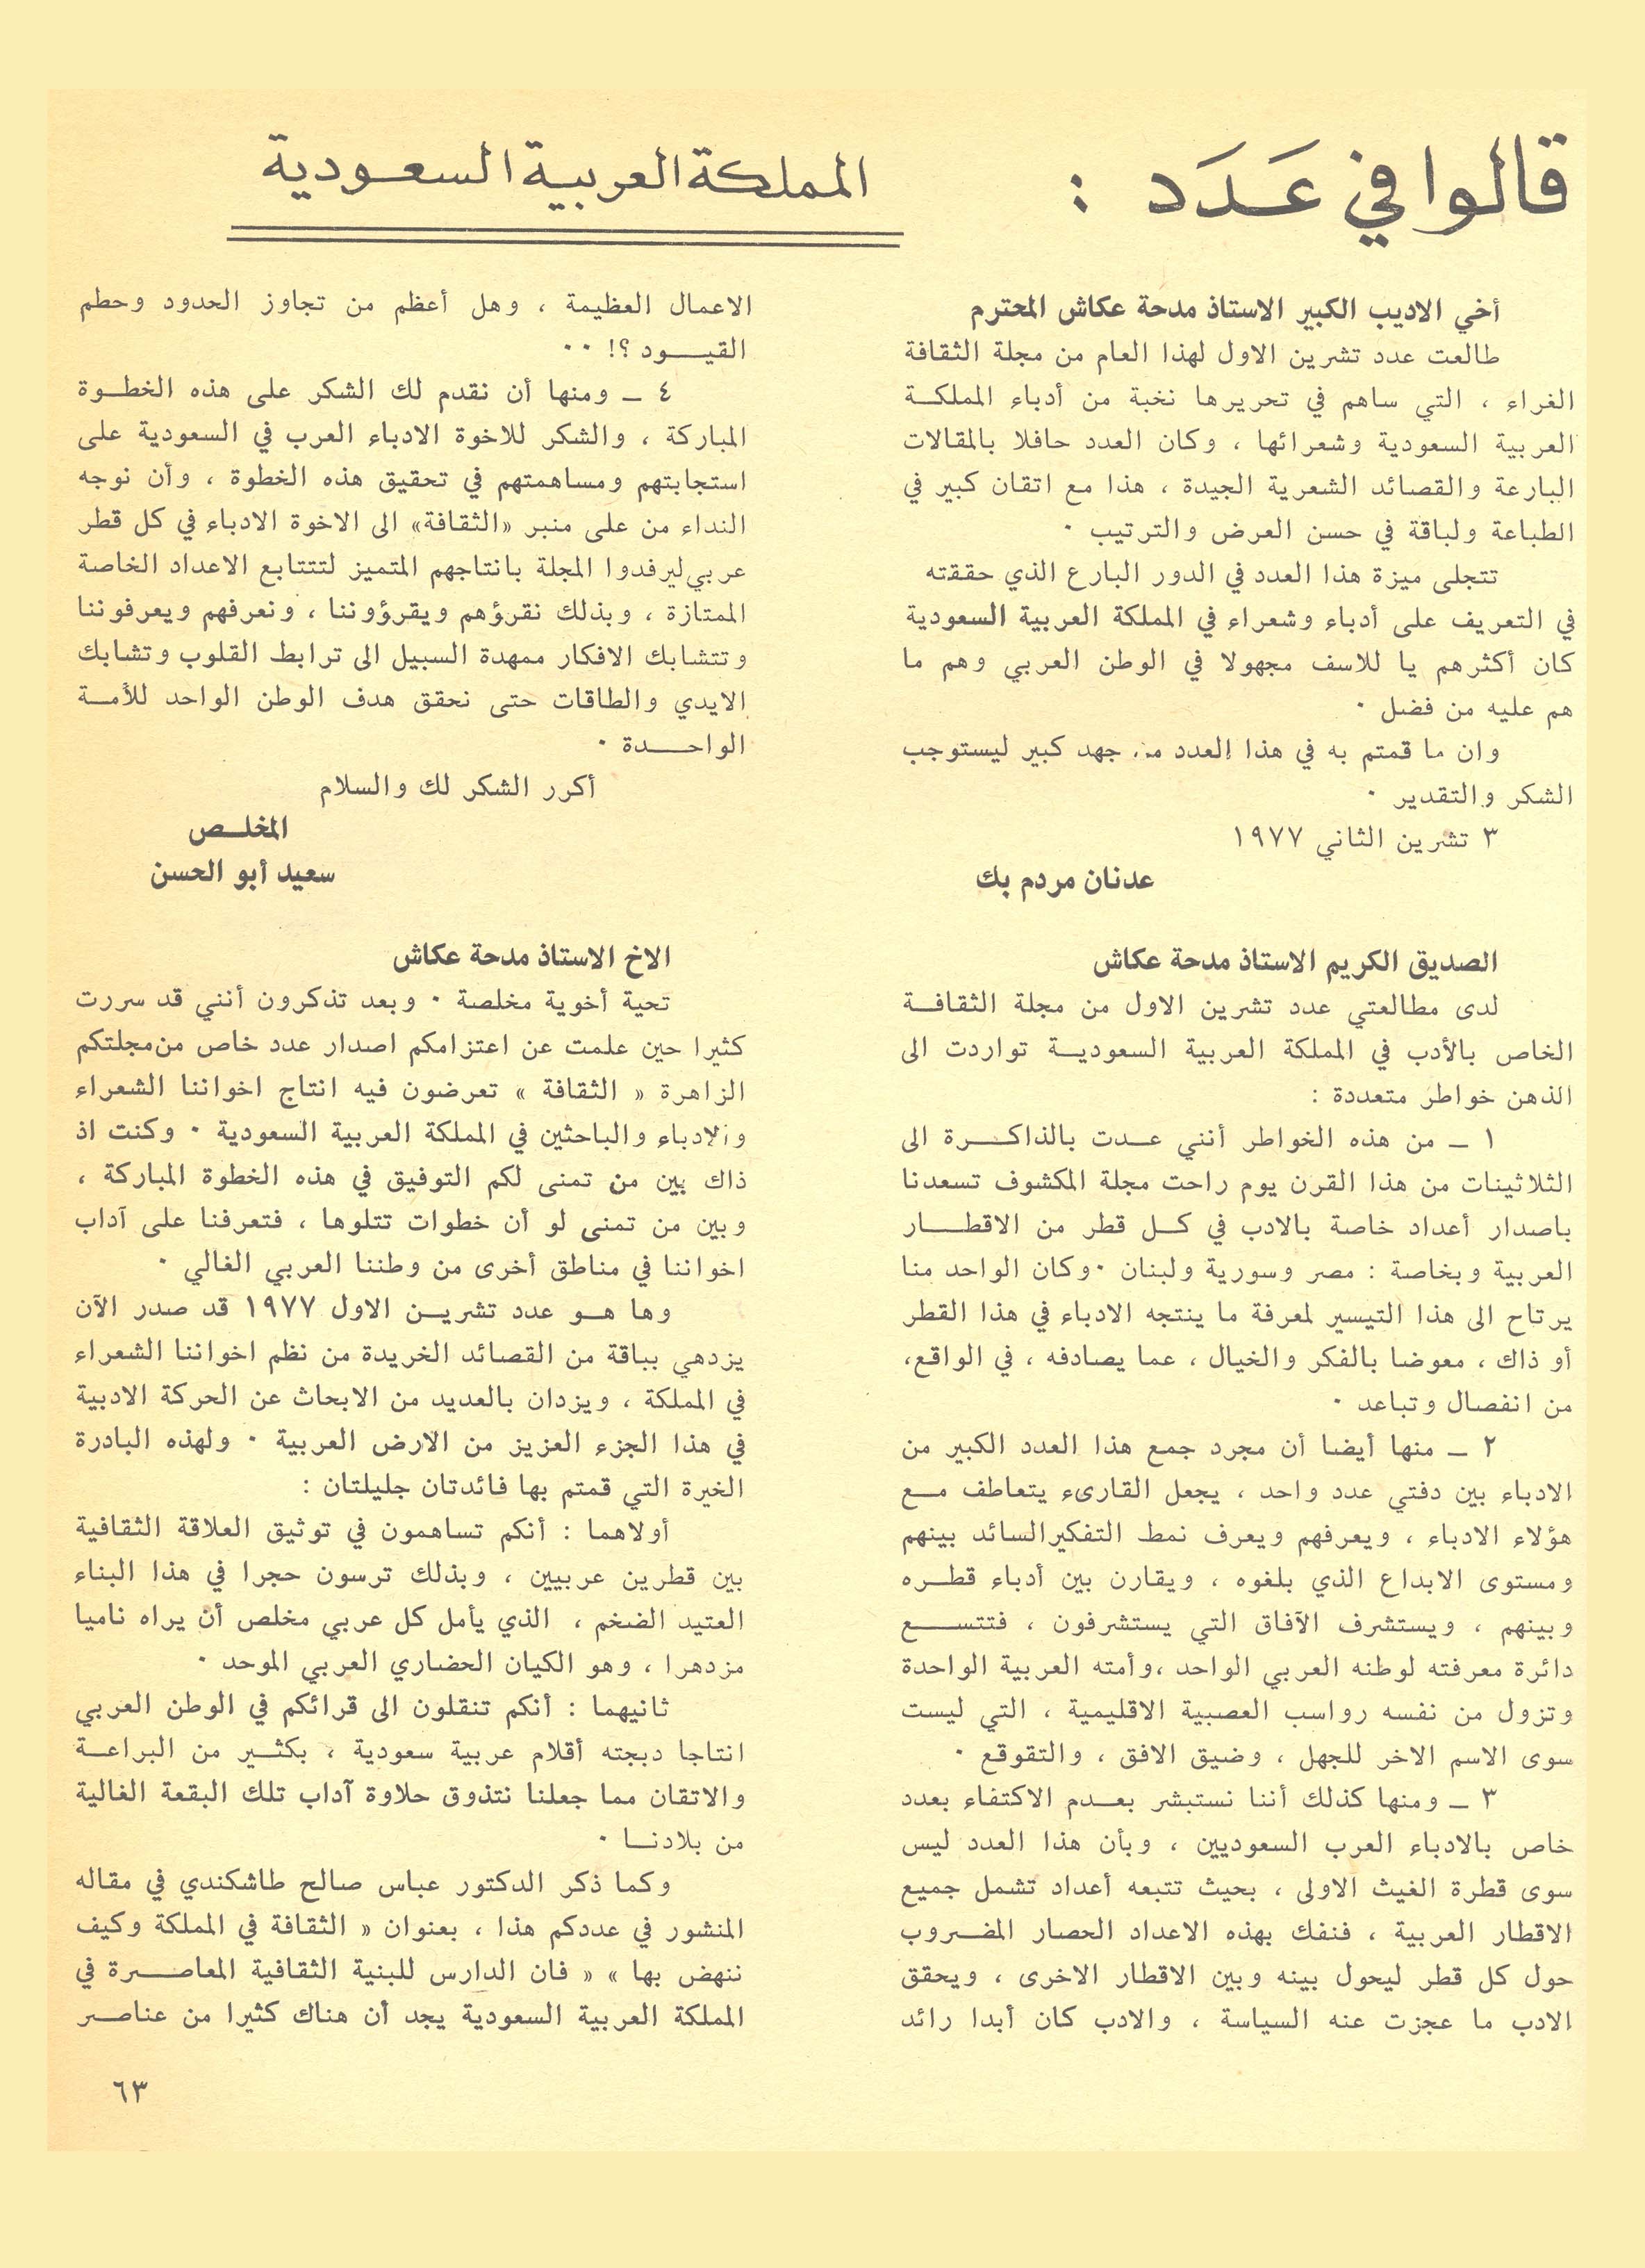 قالوا في عَدَد :
المملكة العربية السعودية
أخي الاديب الكبير الاستاذ مدحة عكاش المحترم
طالعت عدد تشرين الاول لهذا العام من مجلة الثقافة
الغراء ، التي ساهم في تحريرها نخبة من أدباء المملكة
العربية السعودية وشعرائها ، وكان العدد حافلا بالمقالات
البارعة والقصائد الشعرية الجيدة ، هذا مع اتقان كبير في
الطباعة ولباقة في حسن العرض والترتيب ٠
تتجلى ميزة هذا العدد في الدور البارع الذي حققته
في التعريف على أدباء وشعراء في المملكة العربية السعودية
كان أكثرهم يا للاسف مجهولا في الوطن العربي وهم ما
هم عليه من فضل ٠
وان ما قمتم به في هذا العدد من جهد كبير ليستوجب
الشكر والتقدير ٠
٣ تشرين الثاني ١٩٧٧
عدنان مردم بك
الصديق الكريم الاستاذ مدحة عكاش
لدى مطالعتي عدد تشرين الاول من مجلة الثقافة
الخاص بالأدب في المملكة العربية السعودية تواردت الى
الذهن خواطر متعددة :
١ ــ من هذه الخواطر أنني عدت بالذاكرة الى
الثلاثينات من هذا القرن يوم راحت مجلة المكشوف تسعدنا
باصدار أعداد خاصة بالادب في كل قطر من الاقطار
العربية وبخاصة : مصر وسورية ولبنان ٠ وكان الواحد منا
يرتاح الى هذا التيسير لمعرفة ما ينتجه الادباء في هذا القطر
أو ذاك ، معوضا بالفكر والخيال ، عما يصادفه ، في الواقع،
من انفصال وتباعد ٠
٢ ــ منها أيضا أن مجرد جمع هذا العدد الكبير من
الادباء بين دفتي عدد واحد ، يجعل القارىء يتعاطف مع
هؤلاء الادباء ، ويعرفهم ويعرف نمط التفكير السائد بينهم
ومستوى الابداع الذي بلغوه ، ويقارن بين أدباء قطره
وبينهم ، ويستشرف الآفاق التي يستشرفون ، فتتسع
دائرة معرفته لوطنه العربي الواحد ،وأمته العربية الواحدة
وتزول من نفسه رواسب العصبية الاقليمية ، التي ليست
سوى الاسم الاخر للجهل ، وضيق الافق ، والتقوقع ٠
٣ ــ ومنها كذلك أننا نستبشر بعدم الاكتفاء بعدد
خاص بالادباء العرب السعوديين ، وبأن هذا العدد ليس
سوى قطرة الغيث الاولى ، بحيث تتبعه أعداد تشمل جميع
الاقطار العربية ، فنفك بهذه الاعداد الحصار المضروب
حول كل قطر ليحول بينه وبين الاقطار الاخرى ، ويحقق
الادب ما عجزت عنه السياسة ، والادب كان أبدا رائد
الاعمال العظيمة ، وهل أعظم من تجاوز الحدود وحطم
القيود ؟! ٠٠
٤ ــ ومنها أن نقدم لك الشكر على هذه الخطوة
المباركة ، والشكر للاخوة الادباء العرب في السعودية على
استجابتهم ومساهمتهم في تحقيق هذه الخطوة ، وأن نوجه
النداء من على منبر «الثقافة» الى الاخوة الادباء في كل قطر
عربي ليرفدوا المجلة بانتاجهم المتميز لتتتابع الاعداد الخاصة
الممتازة ، وبذلك نقرؤهم ويقرؤوننا ، ونعرفهم ويعرفوننا
وتتشابك الافكار ممهدة السبيل الى ترابط القلوب وتشابك
الايدي والطاقات حتى نحقق هدف الوطن الواحد للأمة
الواحدة ٠
أكرر الشكر لك والسلام
المخلص
سعيد أبو الحسن
الاخ الاستاذ مدحة عكاش
تحية أخوية مخلصة ٠ وبعد تذكرون أنني قد سررت
كثيرا حين علمت عن اعتزامكم اصدار عدد خاص من مجلتكم
الزاهرة « الثقافة » تعرضون فيه انتاج اخواننا الشعراء
والادباء والباحثين في المملكة العربية السعودية ٠ وكنت اذ
ذاك بين من تمنى لكم التوفيق في هذه الخطوة المباركة ،
وبين من تمنى لو أن خطوات تتلوها ، فتعرفنا على آداب
اخواننا في مناطق أخرى من وطننا العربي الغالي ٠
وها هو عدد تشرين الاول ١٩٧٧ قد صدر الآن
يزدهي بباقة من القصائد الخريدة من نظم اخواننا الشعراء
في المملكة ، ويزدان بالعديد من الابحاث عن الحركة الادبية
في هذا الجزء العزيز من الارض العربية ٠ ولهذه البادرة
الخيرة التي قمتم بها فائدتان جليلتان :
أولاهما : أنكم تساهمون في توثيق العلاقة الثقافية
بين قطرين عربيين ، وبذلك ترسون حجرا في هذا البناء
العتيد الضخم ، الذي يأمل كل عربي مخلص أن يراه ناميا
مزدهرا ، وهو الكيان الحضاري العربي الموحد ٠
ثانيهما : أنكم تنقلون الى قرائكم في الوطن العربي
انتاجا دبجته أقلام عربية سعودية ، بكثير من البراعة
والاتقان مما جعلنا نتذوق حلاوة آداب تلك البقعة الغالية
من بلادنا ٠
وكما ذكر الدكتور عباس صالح طاشكندي في مقاله
المنشور في عددكم هذا ، بعنوان « الثقافة في المملكة وكيف
ننهض بها » « فان الدارس للبنية الثقافية المعاصرة في
المملكة العربية السعودية يجد أن هناك كثيرا من عناصر
٦٣